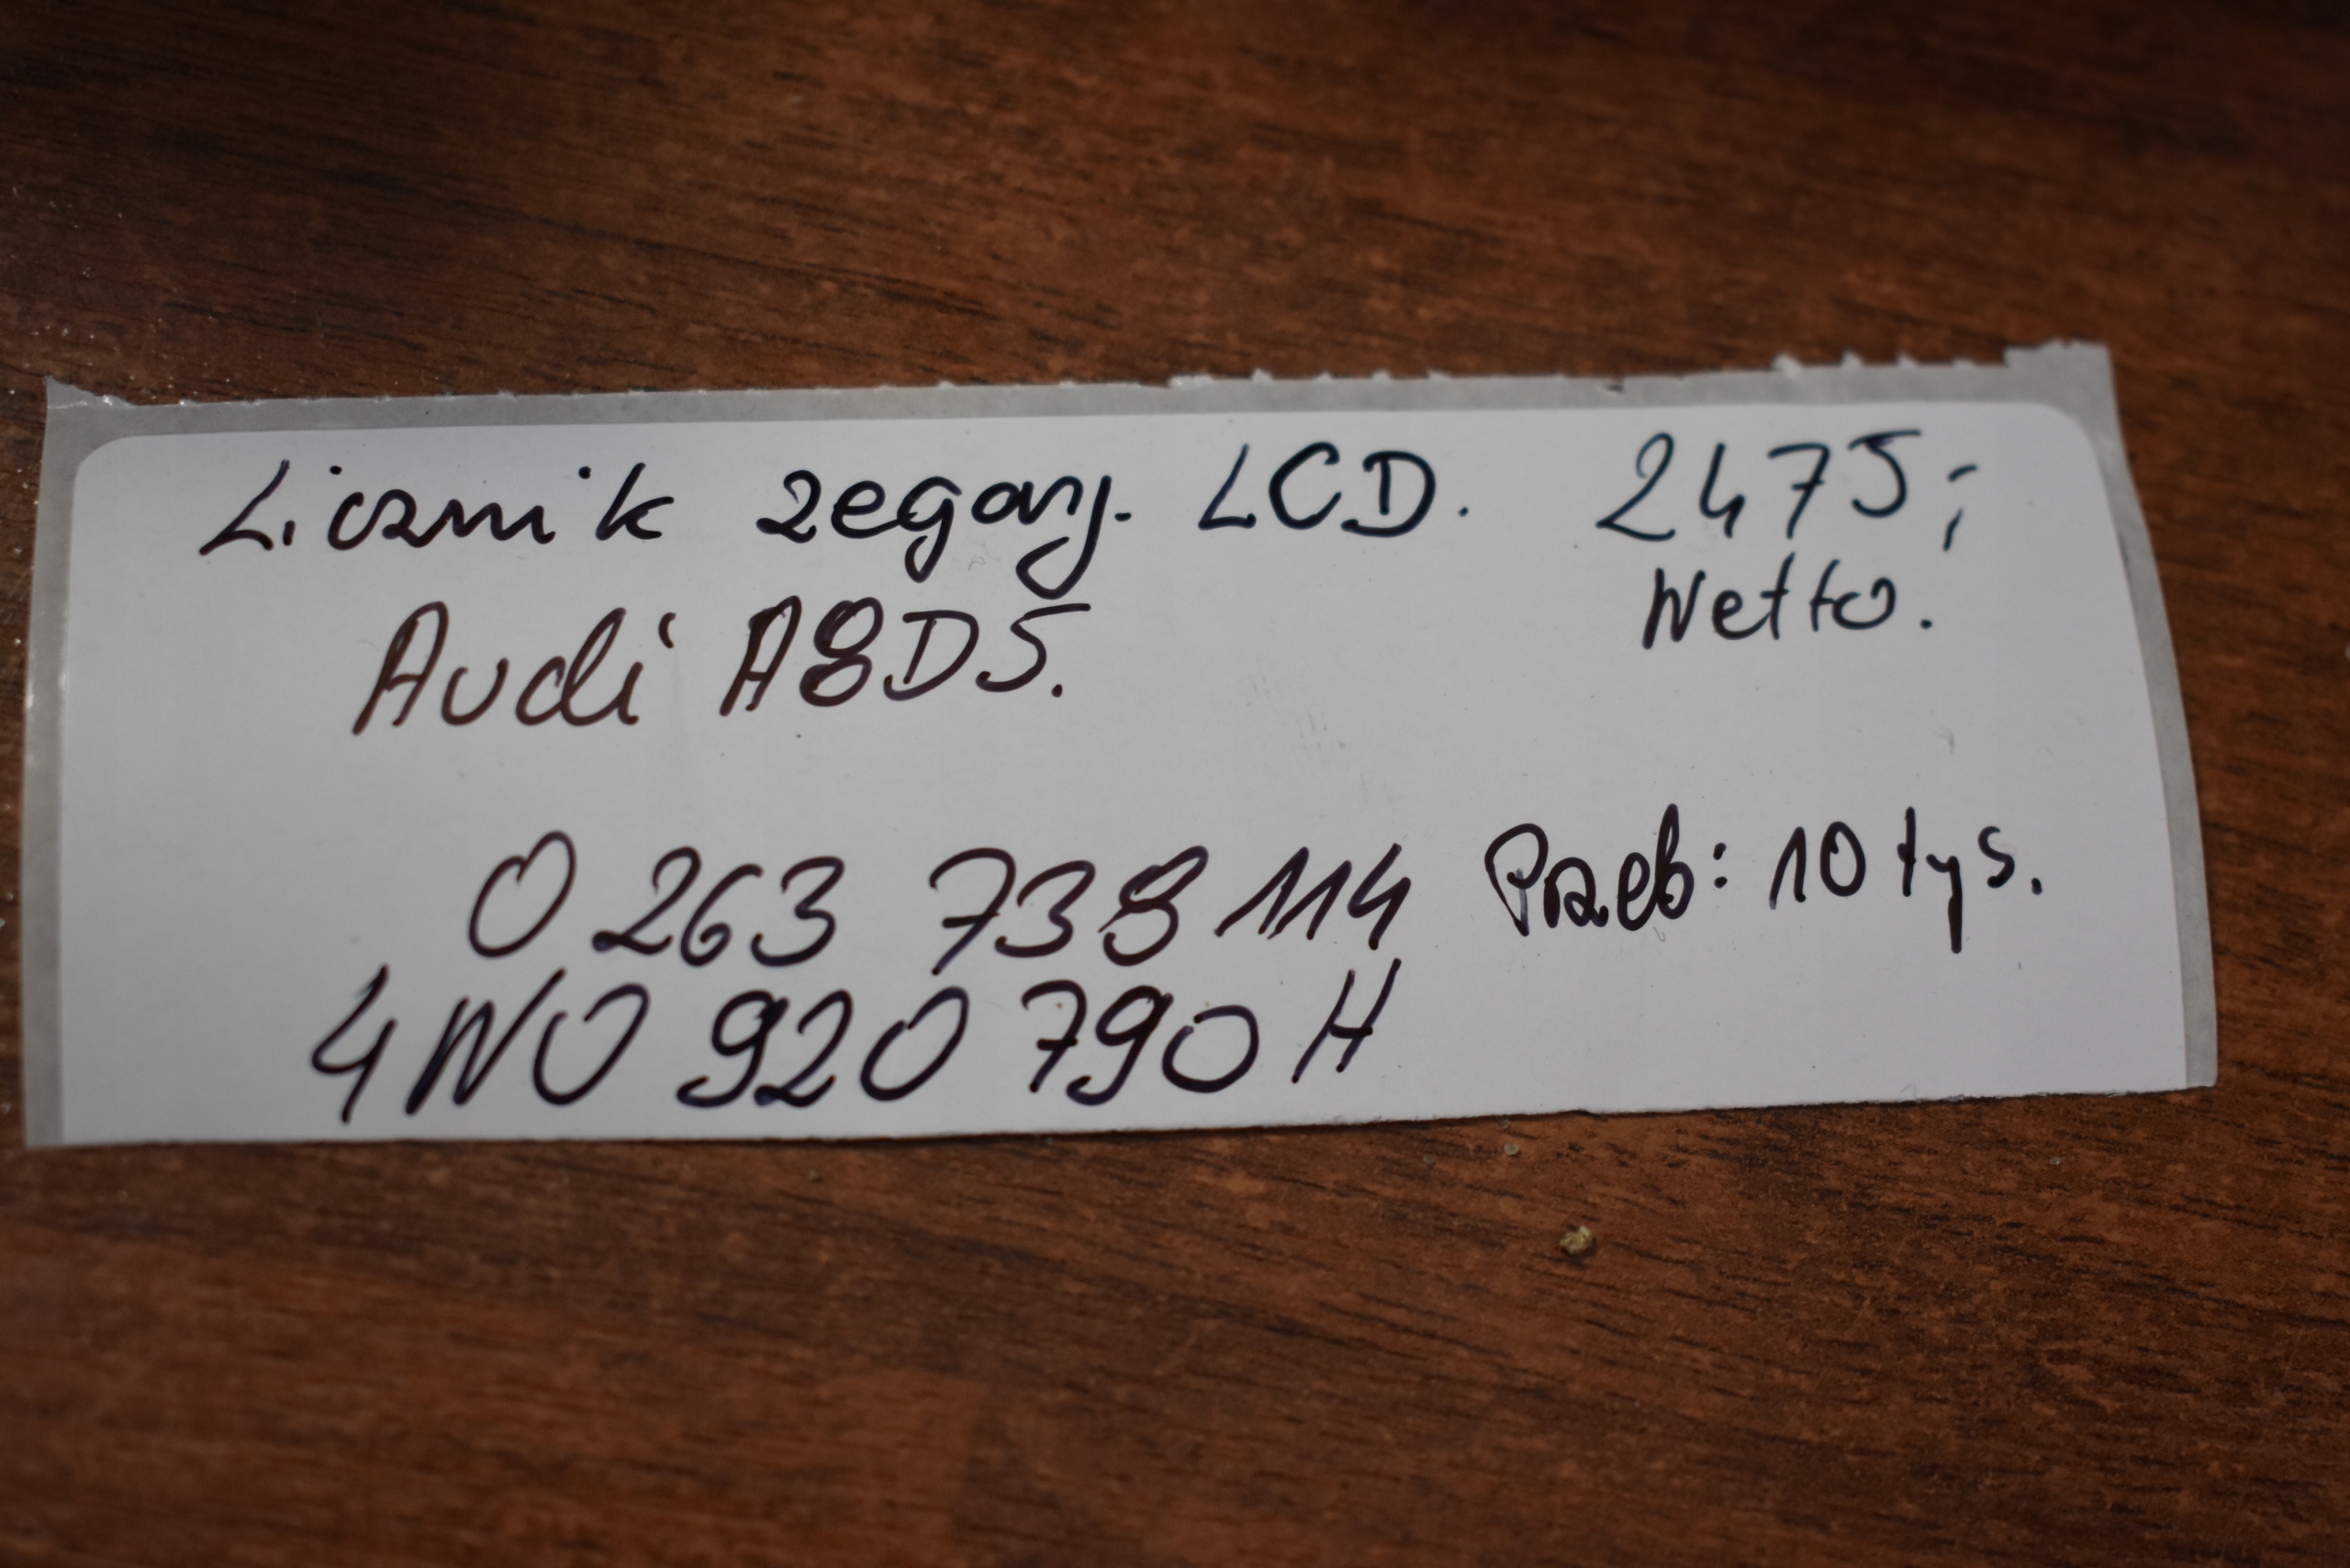 Licznik zegary. LCD. 2475,-
Netto.
Audi A8D5.
0 263 738 114 Przeb: 10 tys.
4N0 920 790 H